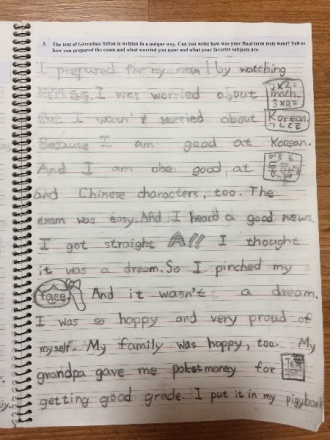 3. The text of Geronimo Stilton is written in a unique way. Can you write how was your final term tests went? Tell us
how you prepared the exam and what worried you most and what your favorite subjects are.
I prepared for my exam by watching
I was worried about 2x2= math. 3x2=
But I wasn't worried about Korean. ㄱㄴㄷㄹ
Because I am good at Korean.
And I am also good at
and Chinese characters, too. The
exam was easy. And I heard a good news.
I got straight A!! I thought
it was a dream. So I pinched my
face And it wasn't a dream.
I was so happy and very proud of
myself. My family was happy, too. My
grandpa gave me poketmoney for
getting good grade. I put it in my pigybank